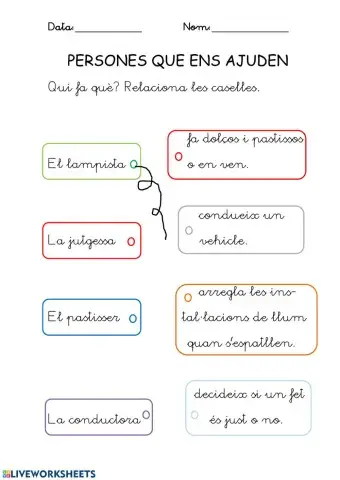 Data:____________ Nom:______________
PERSONES QUE ENS AJUDEN
Qui fa què? Relaciona les caselles.
El lampista
fa dolços i pastissos
o en ven.
La jutgessa
condueix un
vehicle.
El pastisser
arregla les ins-
tal·lacions de llum
quan s'espatllen.
La conductora
decideix si un fet
és just o no.
LIVEWORKSHEETS